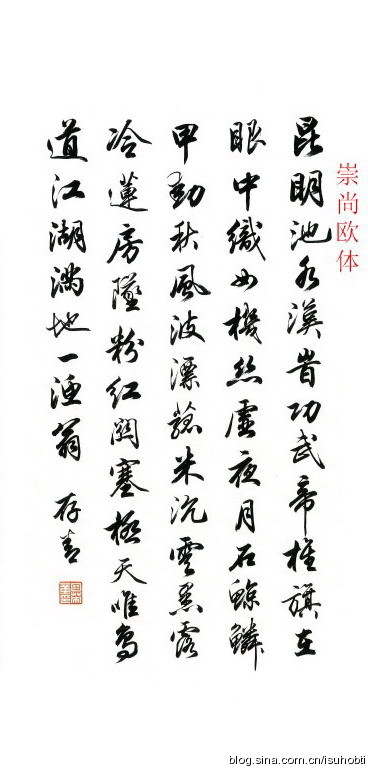 崇尚欧体
昆明池水漢旹功武帝旌旗在
眼中織女機絲虛夜月石鯨鱗
甲動秋風波漂菰米沉雲黑露
冷蓮房墜粉紅關塞極天唯鳥
道江湖滿地一漁翁 存
blog.sina.com.cn/isuhobti